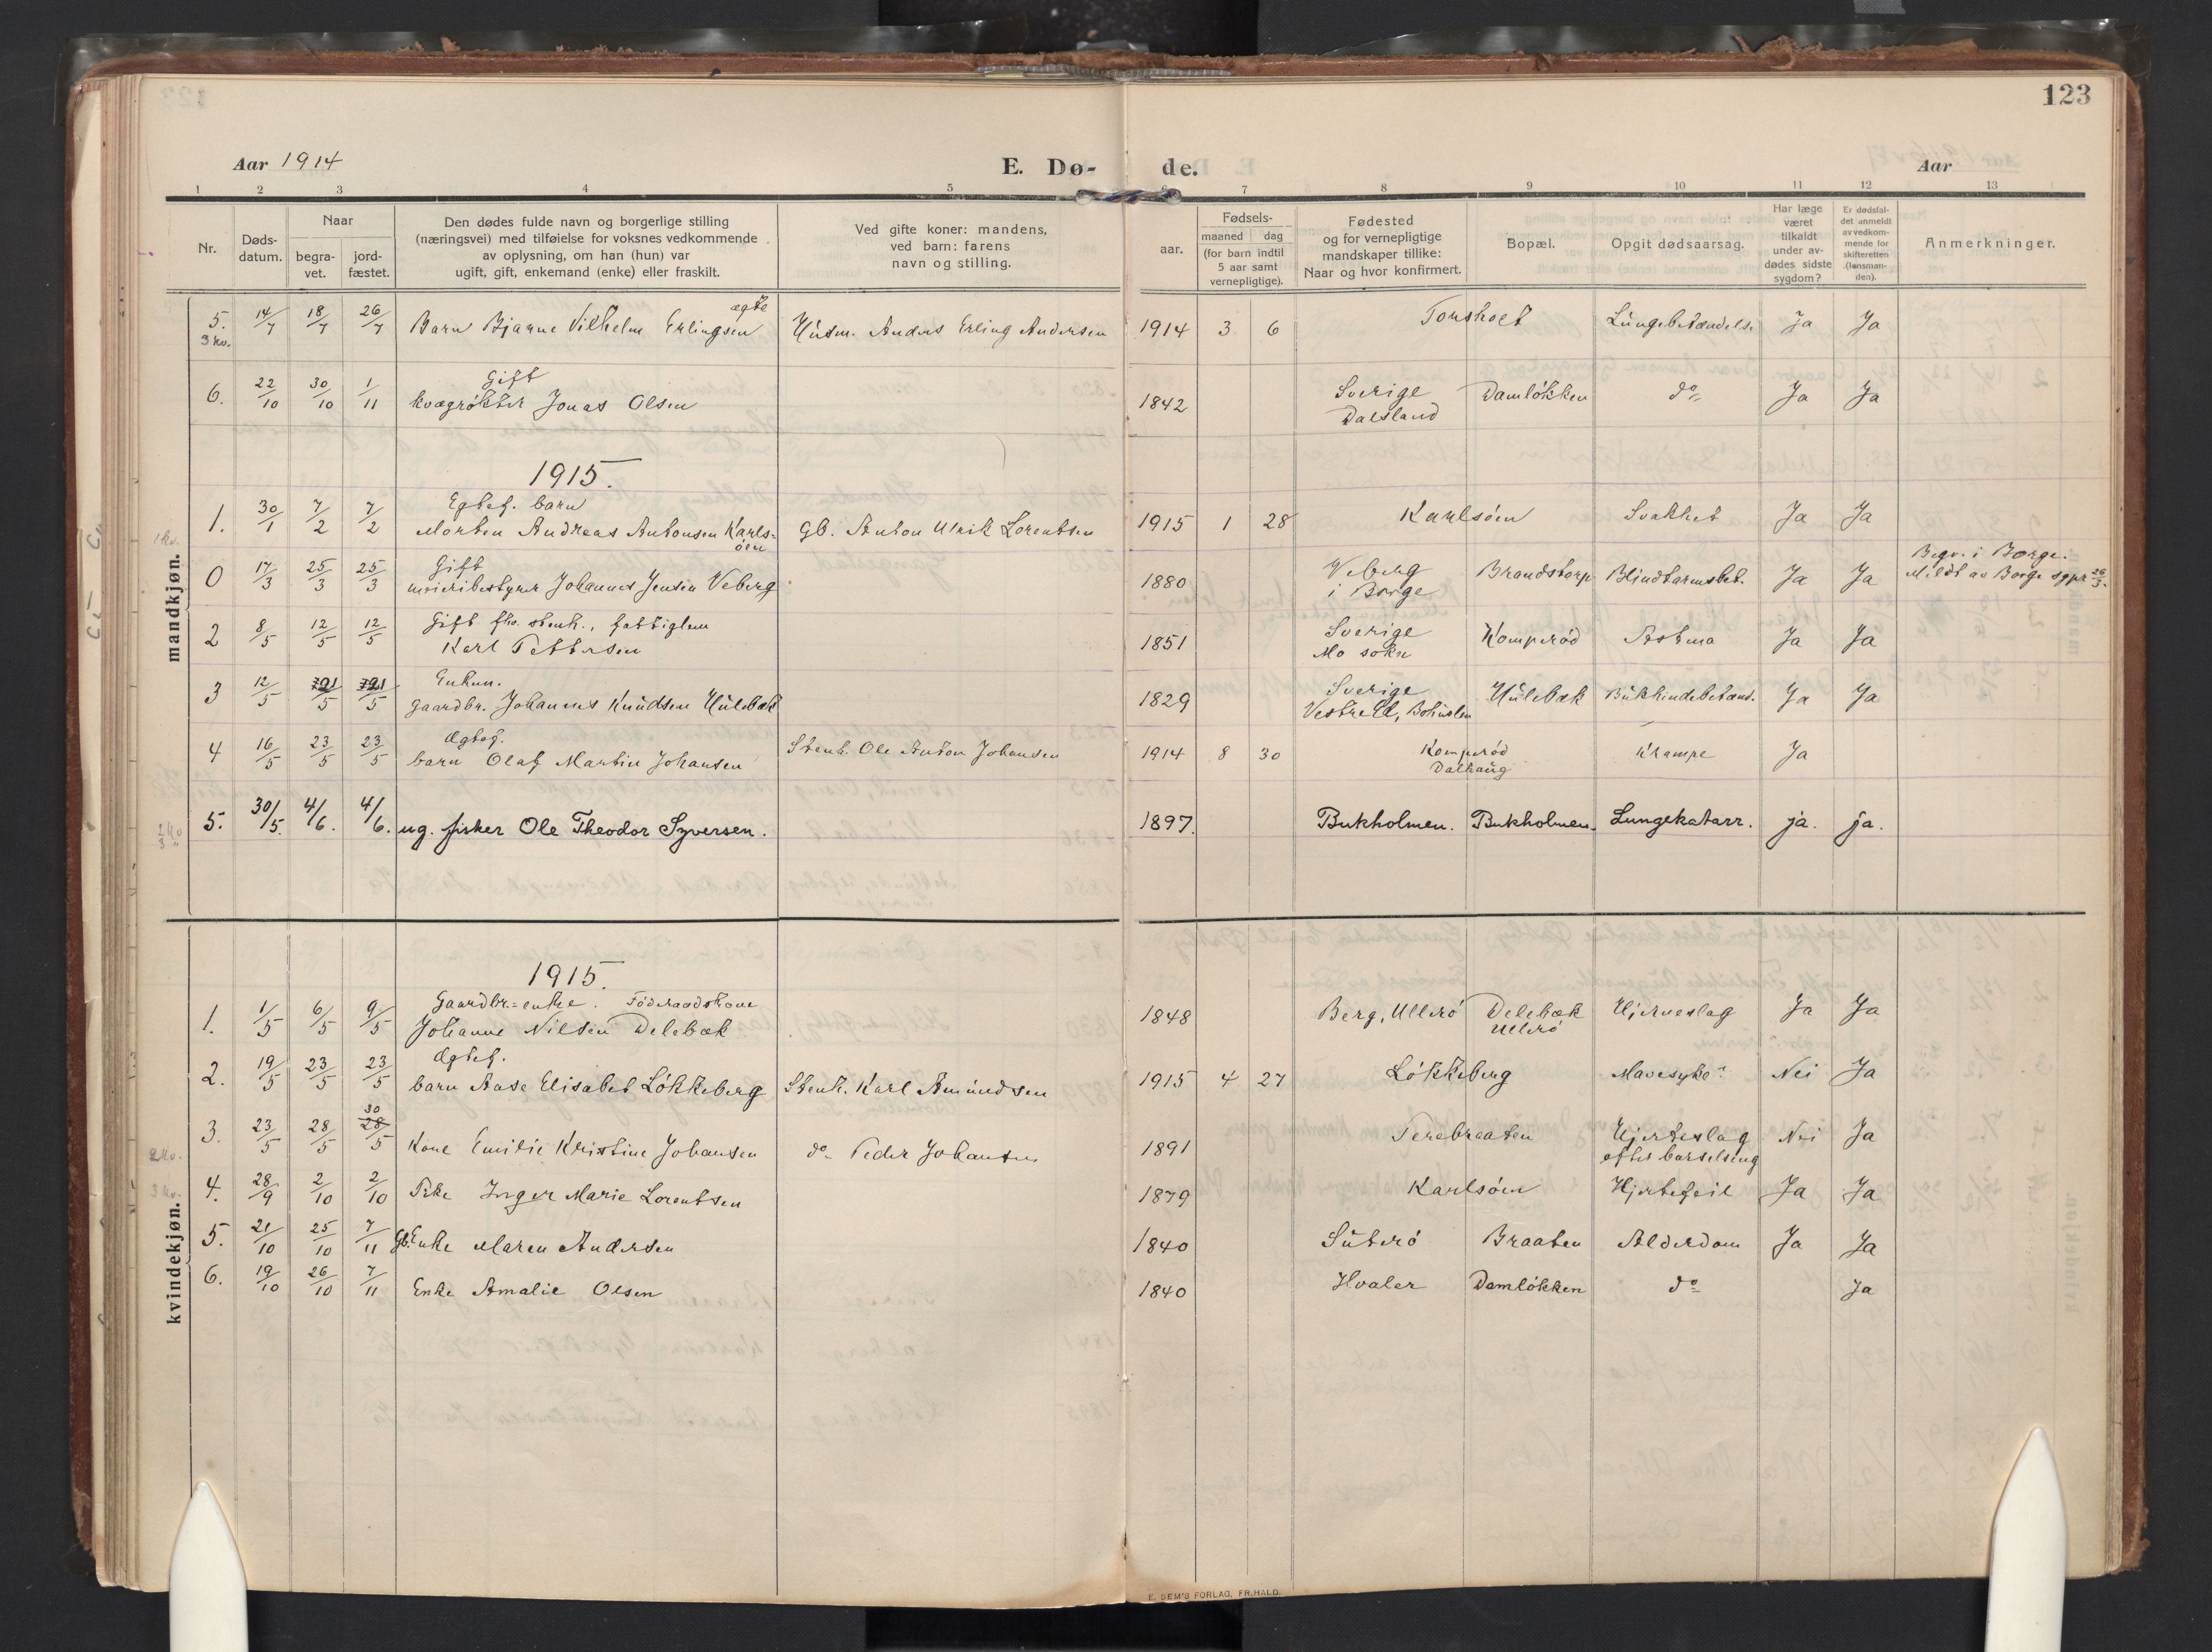 123
Aar 1914
E. Dø-
de.
Aar
1 2 3 4 5 6 7 8 9 10 11 12 13
Nr.
Døds-
datum.
Naar
begra-
vet.
jord-
fæstet.
Den dødes fulde navn og borgerlige stilling
(næringsvei) med tilføielse for voksnes vedkommende
av oplysning, om han (hun) var
ugift, gift, enkemand (enke) eller fraskilt.
Ved gifte koner: mandens,
ved barn: farens
navn og stilling.
aar.
Fødsels-
maaned dag
(for barn indtil
5 aar samt
vernepligtige).
Fødested
og for vernepligtige
mandskaper tillike:
Naar og hvor konfirmert.
Bopæl.
Opgit dødsaarsag.
Har læge
været
tilkaldt
under av-
dødes sidste
sygdom?
Er dødsfal-
det anmeldt
av vedkom-
mende for
skifteretten
(lensman-
den).
Anmerkninger.
mandkjøn.
ægte
5. 14/7 18/7 26/7 Barn Bjarne Vilhelm Erlingsen Husm. Anders Erling Andersen 1914 3 6 Torsholt Lungebetændelse Ja Ja
3 kv.
Gift
6. 22/10 30/10 1/11 kvægrøkter Jonas Olsen 1842 Sverige Damløkken do Ja Ja
Dalsland
1915.
Egtef. barn
1. 30/1 7/2 7/2 Morten Andreas Antonsen Karls- Gb. Anton Ulrik Lorentsen 1915 1 28 Karlsøen Svakhet Ja Ja
1 kv.
øen
Gift
0 17/3 25/3 25/3 meieribestyrer Johannes Jensen Veberg 1880 Veberg Brandstorp Blindtarmsbet. Ja Ja Begr. i Borge.
i Borge Meldt av Borge sgpr 26/3.
Gift fhv. stenh., fattiglem
2 8/5 12/5 12/5 Karl Pettersen 1851 Sverige Komperød Astma Ja Ja
Mo sokn
Enkem.
3 12/5 21/5 21/5 gaardbr. Johannes Knudsen Hulebæk 1829 Sverige Hulebæk Bukhindebetænd. Ja Ja
Bohuslen
Ægtef.
4 16/5 23/5 23/5 barn Olaf Martin Johansen Stenh. Ole Anton Johansen 1914 8 30 Komperød Krampe Ja
Dalhaug
5. 30/5. 4/6. 4/6. ug. fisker Ole Theodor Syversen. 1897. Bukholmen. Bukholmen. Lungekatarr. ja. ja.
2 kv
3 "
kvindekjøn.
1915.
Gaardbr.=enke. Föderaadskone
1. 1/5 6/5 9/5 Johanne Nilsen Delebæk 1848 Berg, Ullerø Delebæk Hjerneslag Ja Ja
Ullerø
Ægtef.
2. 19/5 23/5 23/5 barn Aase Elisabet Løkkeberg Stenh. Karl Amundsen 1915 4 27 Løkkeberg Mavesyke Nei Ja
30
3. 23/5 28/5 28/5 Kone Emilie Kristine Johansen do Peder Johansen 1891 Perebraaten Hjerteslag Nei Ja
2 kv. efter barselseng
4. 28/9 2/10 2/10 Pike Inger Marie Lorentsen 1879 Karlsøen Hjertefeil Ja Ja
3 kv.
5. 21/10 25/10 7/11 Gb. Enke Maren Andersen 1840 Suterø Braaten Alderdom Ja Ja
6. 19/10 26/10 7/11 Enke Amalie Olsen 1840 Hvaler Damløkken do Ja
E. SEM'S FORLAG, FR.HALD.